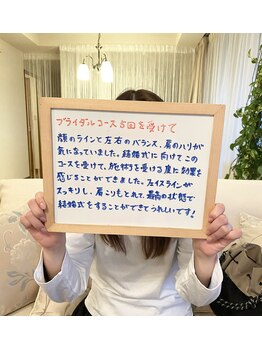 ブライダルコース5回を受けて
顔のラインと左右のバランス、肩のハリが
気になっていました。結婚式に向けてこの
コースを受けて、施術を受ける度に効果を
感じることができました。フェイスラインが
スッキリし、肩こりもとれて、最高の状態で
結婚式をすることができてうれしいです!